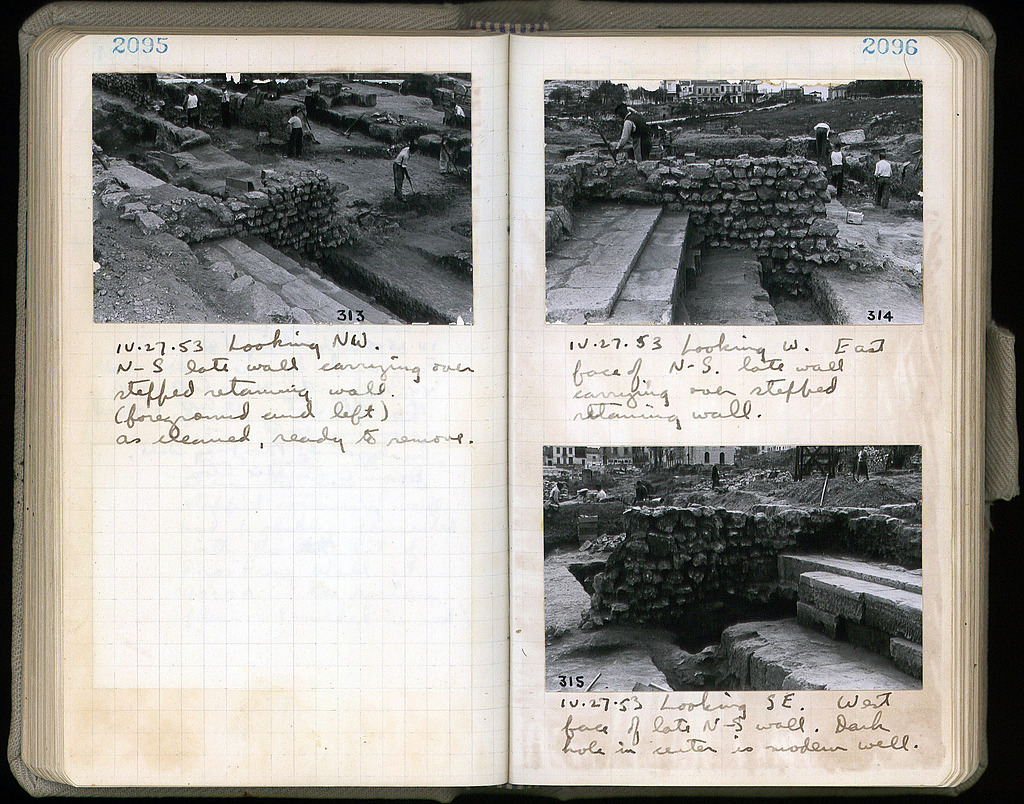 2095
313
IV.27.53 Looking NW.
N-S late wall carrying over
stepped retaining wall.
(foreground and left)
as cleaned, ready to remove.
2096
314
IV.27.53 Looking W. East
face of N-S. late wall
carrying over stepped
retaining wall.
315
IV.27.53 Looking SE. West
face of late N-S wall. Dark
hole in center is modern well.